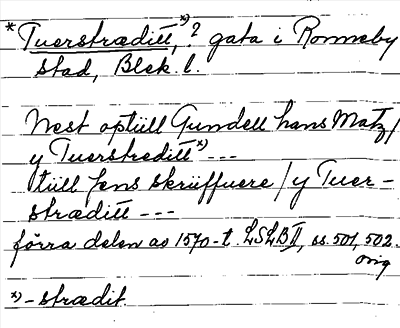 *Tuerstræditt,*) ? gata i Ronneby
stad, Blek. l.
Nest optüll Gundell hans Matz/
y Tuerstreditt*) ---
tüll Jens skrüffuere/y Tuer-
stræditt ---
förra delen av 1570-t. LSLB II, ss. 501, 502.
orig
*) -strædit